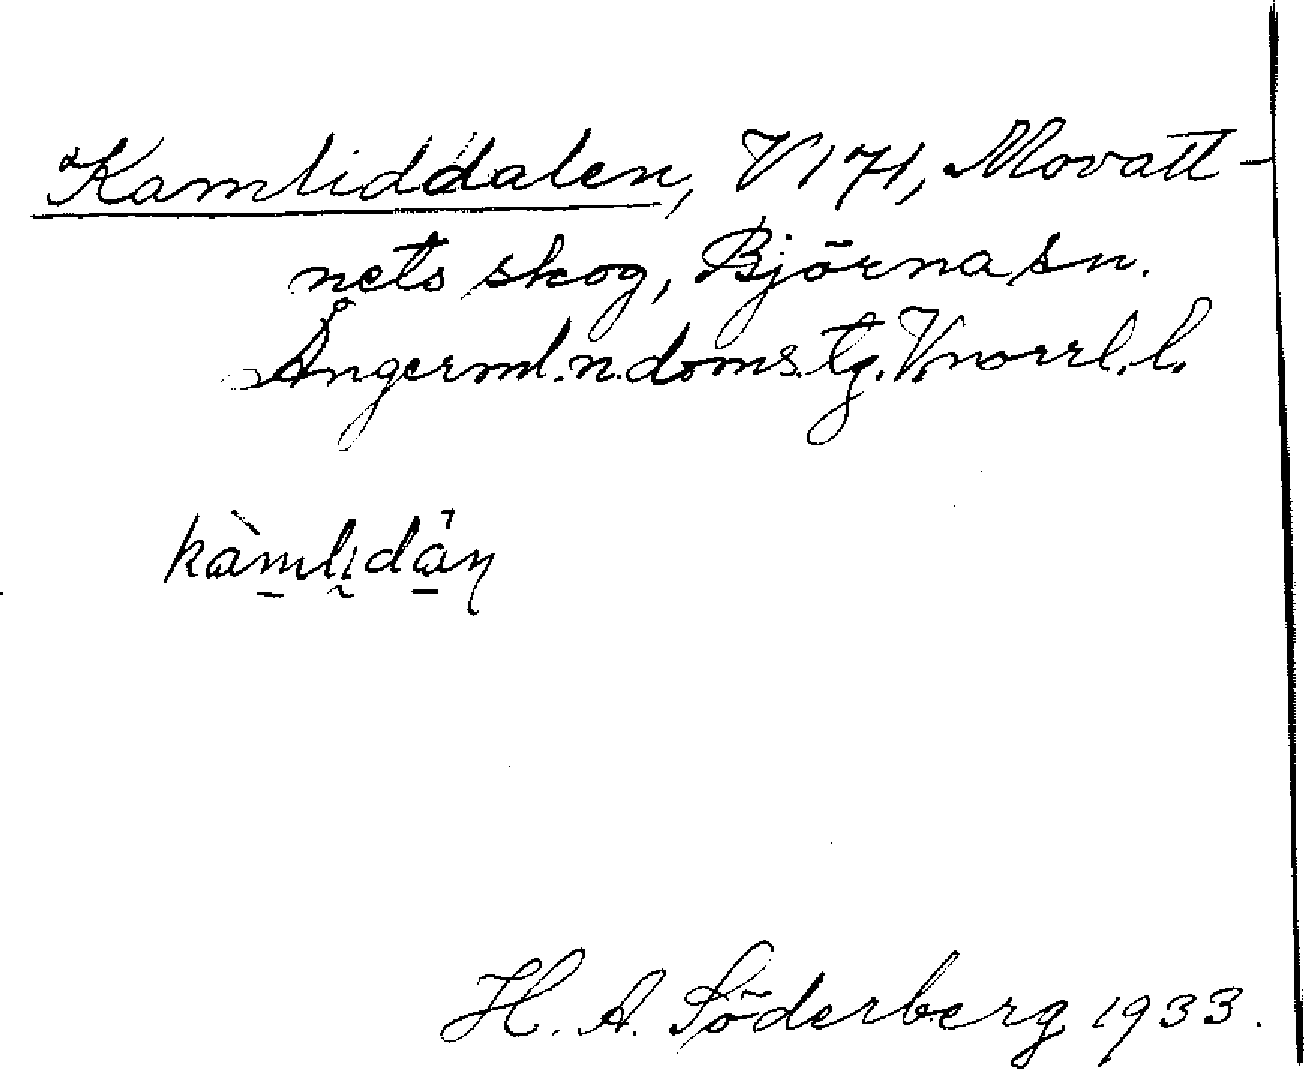 Kamliddalen, V 171, Movatt-
nets skog, Björna sn.
Ångerml. n. doms. tg. V.norrl. l.
kàml̰ıdån̩
H. A. Söderberg 1933.